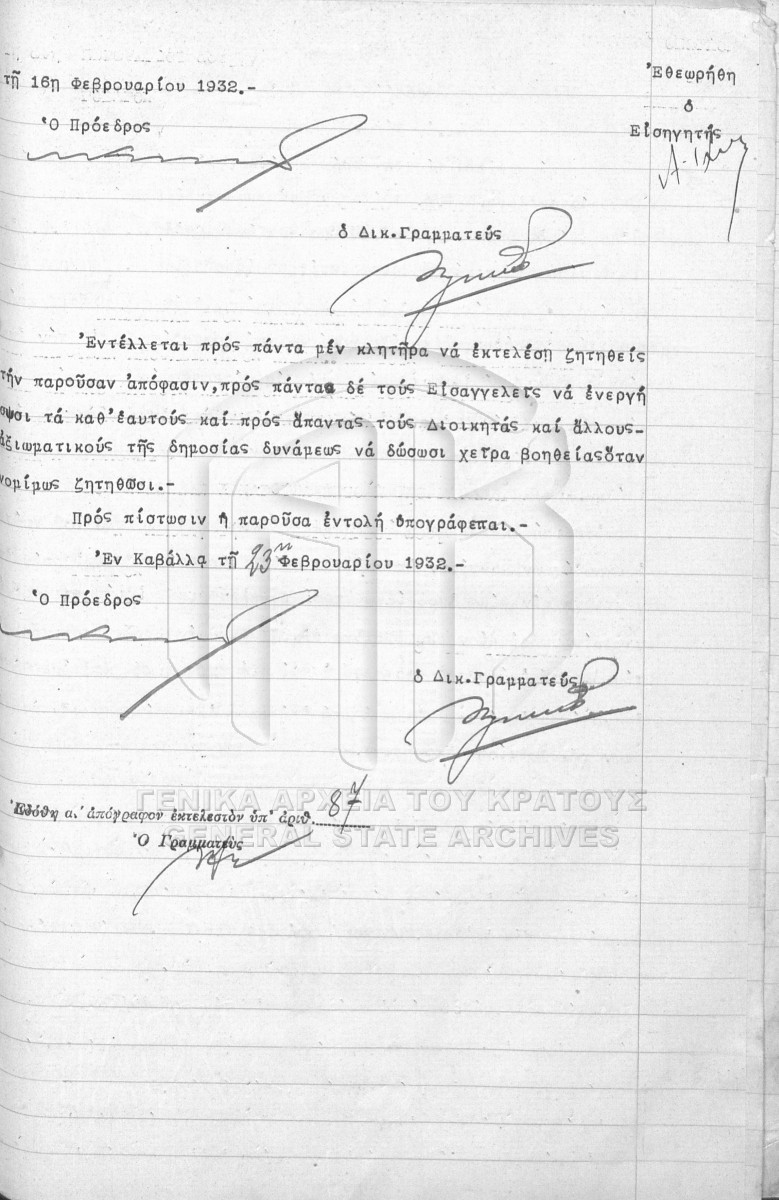 τῇ 16η Φεβρουαρίου 1932.-
Ἐθεωρήθη
ὁ
Εἰσηγητής
Ὁ Πρόεδρος
ὁ Δικ.Γραμματεύς
Ἐντέλλεται πρός πάντα μέν κλητῆρα νά ἐκτελέσῃ ζητηθείς
τήν παροῦσαν ἀπόφασιν,πρός πάντας δέ τούς Εἰσαγγελεῖς νά ἐνεργή
σωσι τά καθ'ἑαυτούς καί πρός ἅπαντας τούς Διοικητάς καί ἄλλους-
ἀξιωματικούς τῆς δημοσίας δυνάμεως νά δώσωσι χεῖρα βοηθείαςὅταν
νομίμως ζητηθῶσι.-
Πρός πίστωσιν ἡ παροῦσα ἐντολή ὑπογράφεται.-
Ἐν Καβάλλᾳ τῇ 23η Φεβρουαρίου 1932.-
Ὁ Πρόεδρος
ὁ Δικ.Γραμματεύς
ΓΕΝΙΚΑ ΑΡΧΕΙΑ ΤΟΥ ΚΡΑΤΟΥΣ
Ἐδόθη α.' ἀπόγραφον ἐκτελεστὸν ὑπ' ἀριθ. 87
GENERAL STATE ARCHIVES
Ὁ Γραμματεὺς